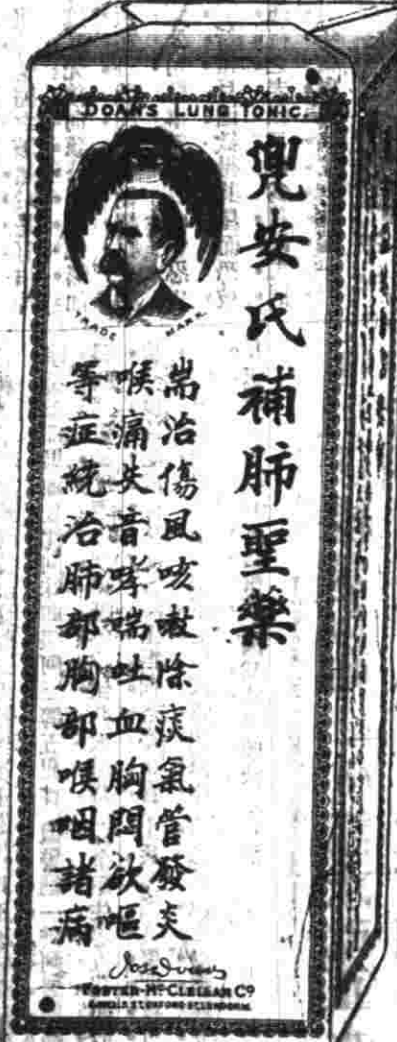 DOAN'S LUNG TONIC
TRADE MARK
兜安氏補肺聖藥
耑治傷風咳嗽除痰氣管發炎
喉痛失音哮喘吐血胸悶欲嘔
等症統治肺部胸部喉咽諸病
FOSTER-McCLELLAN Co